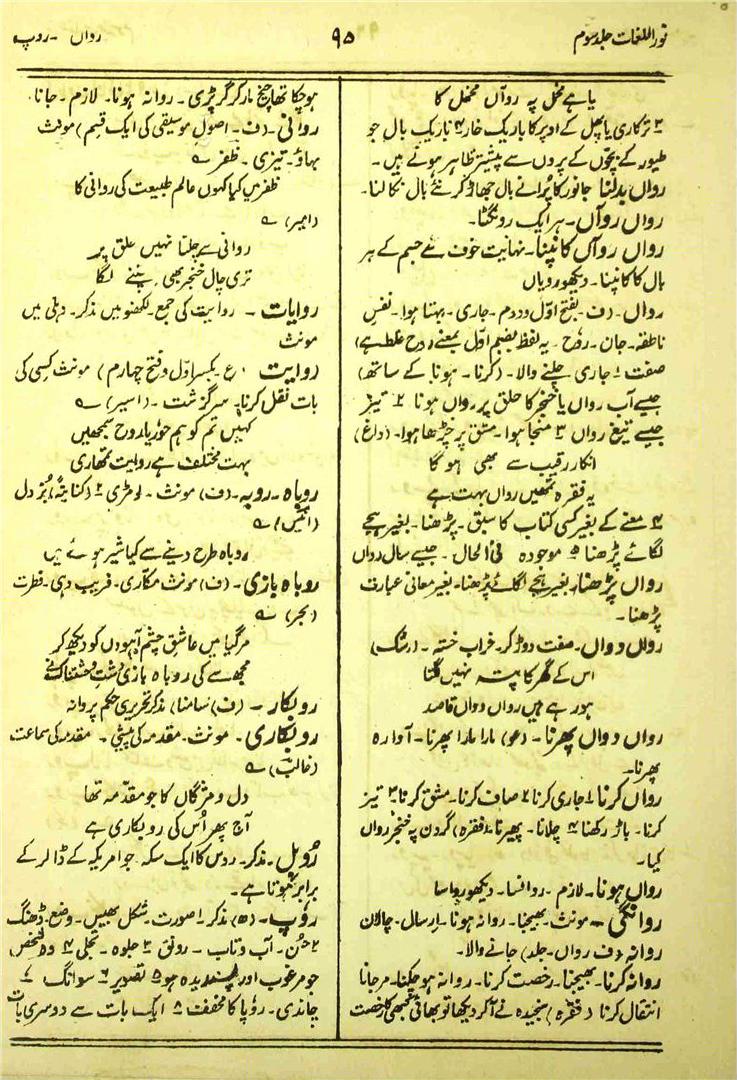 نور اللغات جلد سوم
۹۵
رواں - روپ
یا ہے مخمل پہ رواں مخمل کا
۳ ترکاری یا پھل کے اوپر کا باریک خار ۴ باریک بال جو
طیور کے بچّوں کے پروں سے پیشتر ظاہر ہوتے ہیں۔
رواں بدلنا جانور کا پُرانے بال جھاڑ کر نئے بال نکالنا۔
رواں رواں۔ ہر ایک رونگٹا۔
رواں رواں کانپنا۔ نہایت خوف سے جسم کے ہر
بال کا کانپنا۔ دیکھو رویاں
رواں۔ (ف۔ بفتح اوّل و دوم۔ جاری۔ بہتا ہوا۔ نفسِ
ناطقہ۔ جان۔ روح۔ یہ لفظ بضم اوّل بمعنے روح غلط ہے)
صفت ۱ جاری چلنے والا۔ (کرنا۔ ہونا کے ساتھ)
جیسے آب رواں یا خنجر کا حلق پر رواں ہونا ۲ تیز
جیسے تیغ رواں ۳ منجا ہوا۔ مشق پر چڑھا ہوا۔ (داغ)
انکار رقیب سے بھی ہو گا
یہ فقرہ تمھیں رواں بہت ہے
۴ معنے کے بغیر کسی کتاب کا سبق۔ پڑھنا۔ بغیر ہجے
لگائے پڑھنا ۵ موجودہ فی الحال۔ جیسے سال رواں
رواں پڑھنا۔ بغیر ہجے لگائے پڑھنا۔ بغیر معانی عبارت
پڑھنا۔
رواں دواں۔ صفت دوڑ کر۔ خراب خستہ۔ (رشک)
اس کے گھر کا پتہ نہیں لگتا
ہو رہے ہیں رواں دواں قاصد
رواں دواں پھرنا۔ (عو) مارا مارا پھرنا۔ آوارہ
پھرنا۔
رواں کرنا ۱ جاری کرنا ۲ صاف کرنا۔ مشق کرنا ۳ تیز
کرنا۔ باڑ رکھنا ۴ چلانا۔ پھیرنا (فقرہ) گردن پہ خنجر رواں
کیا۔
رواں ہونا۔ لازم۔ روانسا۔ دیکھو رواسا
روانگی۔ مونث۔ بھیجنا۔ روانہ ہونا۔ ارسال۔ چالان
روانہ (ف رواں۔ جلد) جانے والا۔
روانہ کرنا۔ بھیجنا۔ رخصت کرنا۔ روانہ ہو چکنا۔ مر جانا
انتقال کرنا (فقرہ) سنجیدہ نے آکر دیکھا تو بھائی کبھی کا رخصت
ہو چکا تھا چیخ مار کر گر پڑی۔ روانہ ہونا۔ لازم۔ جانا۔
روانی۔ (ف۔ اصول موسیقی کی ایک قسم) مونث
بہاؤ۔ تیزی۔ ظفر ؎
ظفر میں کیا کہوں عالم طبیعت کی روانی کا
(امیر) ؎
روانی سے چلتا نہیں حلق پر
تری چال خنجر بھی چلنے لگا
روایات۔ روایت کی جمع۔ لکھنؤ میں مذکر۔ دہلی میں
مونث
روایت (ع بکسر اوّل و فتح چہارم) مونث کسی کی
بات نقل کرنا۔ سرگزشت۔ (اسیر) ؎
کہیں تم کو ہم حور یا روح سمجھیں
بہت مختلف ہے روایت تمھاری
روباہ۔ روبہ۔ (ف) مونث۔ لومڑی ۲ (کنایتہً) بُز دل
(انیس) ؎
روباہ طرح دینے سے کیا شیر ہوئے ہیں
روباہ بازی۔ (ف) مونث مکاری۔ فریب دہی۔ فطرت
(بحر) ؎
مر گیا میں عاشق چشم آہوؤں کو دیکھ کر
مجھ سے کی روباہ بازی دشت وحشتناک نے
روبکار۔ (ف) سامنا) مذکر تحریری حکم پروانہ
روبکاری۔ مونث۔ مقدمہ کی پیشی۔ مقدمہ کی سماعت
(غالب) ؎
دل و مژگاں کا جو مقدمہ تھا
آج پھر اُس کی روبکاری ہے
رُوبل۔ مذکر۔ روس کا ایک سکہ جو امریکہ کے ڈالر کے
برابر ہوتا ہے۔
رُوپ۔ (ھ) مذکر۔ ۱ صورت۔ شکل بھیس۔ وضع۔ ڈھنگ
۲ حُسن۔ آب و تاب۔ رونق ۳ جلوہ۔ تجلی ۴ وہ (شخص)
جو مرغوب اور پسندیدہ ہو ۵ تصویر ۶ سوانگ ۷
چاندی۔ روپا کا مخفف ۸ ایک بات سے دوسری بات